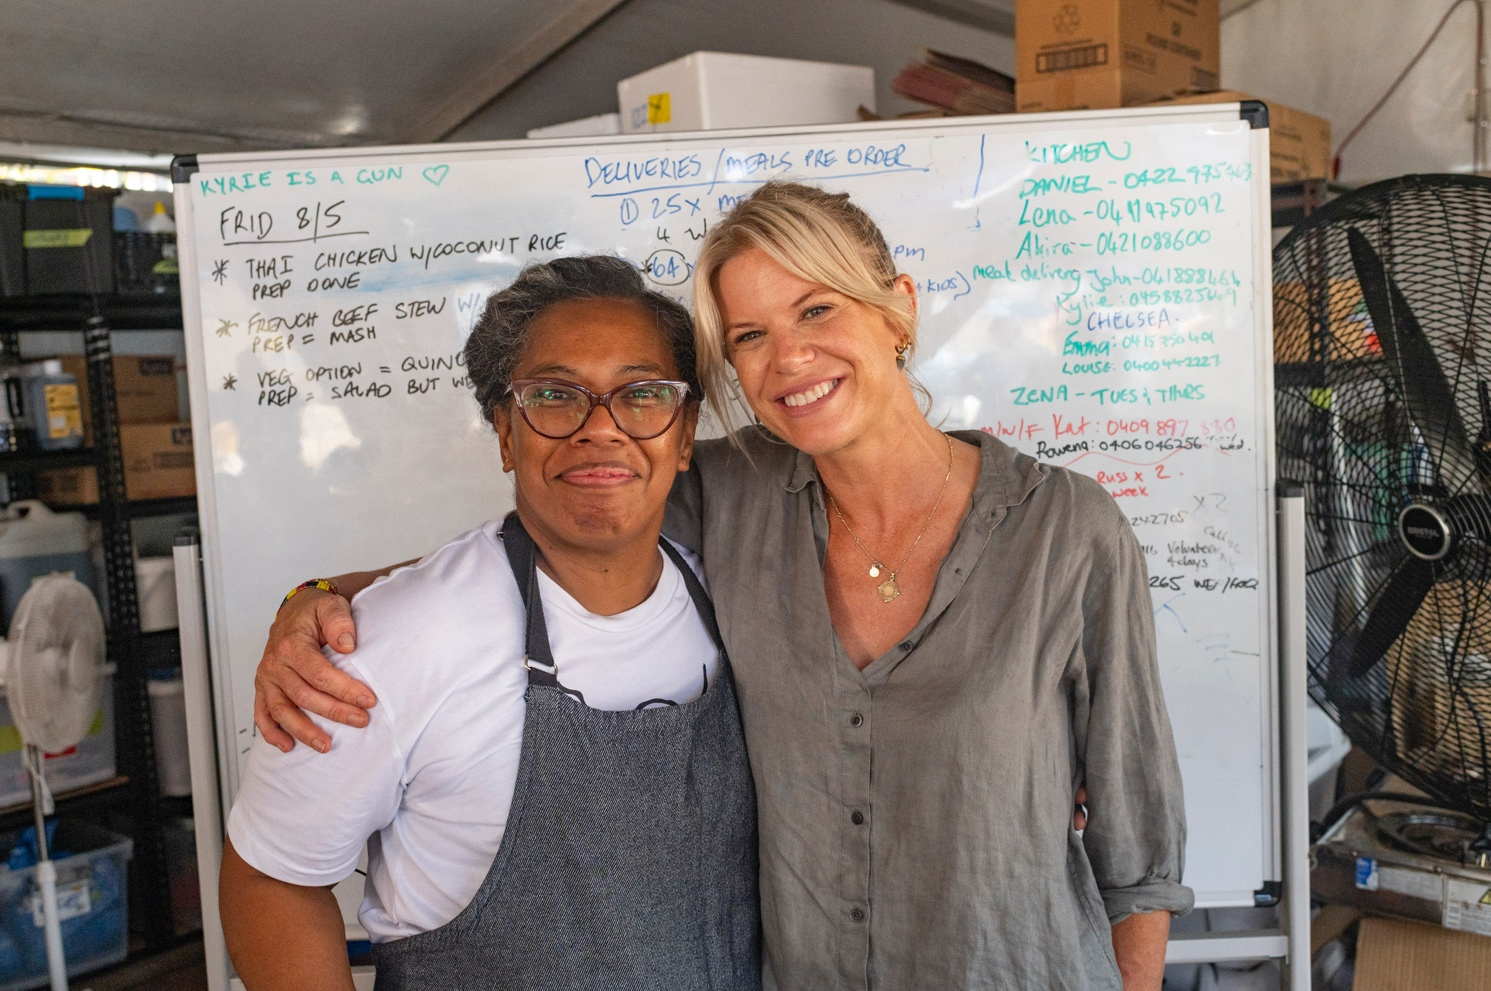 KYRIE IS A GUN
FRID 8/5
* THAI CHICKEN W/COCONUT RICE
PREP DONE
* FRENCH BEEF STEW W/
PREP = MASH
* VEG OPTION = QUINO
PREP = SALAD BUT WE
DELIVERIES / MEALS PRE ORDER
① 25X ME
4 W
64
pm
+ KIDS)
KITCHEN
DANIEL - 0422 975
Lena - 0411975092
Akira - 0421088600
meat delivery John - 04188816
Kylie: 04588256
CHELSEA.
Emma: 0415750401
LOUISE: 0400442227
ZENA - TUES & THURS
m/w/F Kat: 0409 897 830
Rowena: 0406046256 Wed.
Russ x 2
week
X2
242705
Volunteer
4 days
265